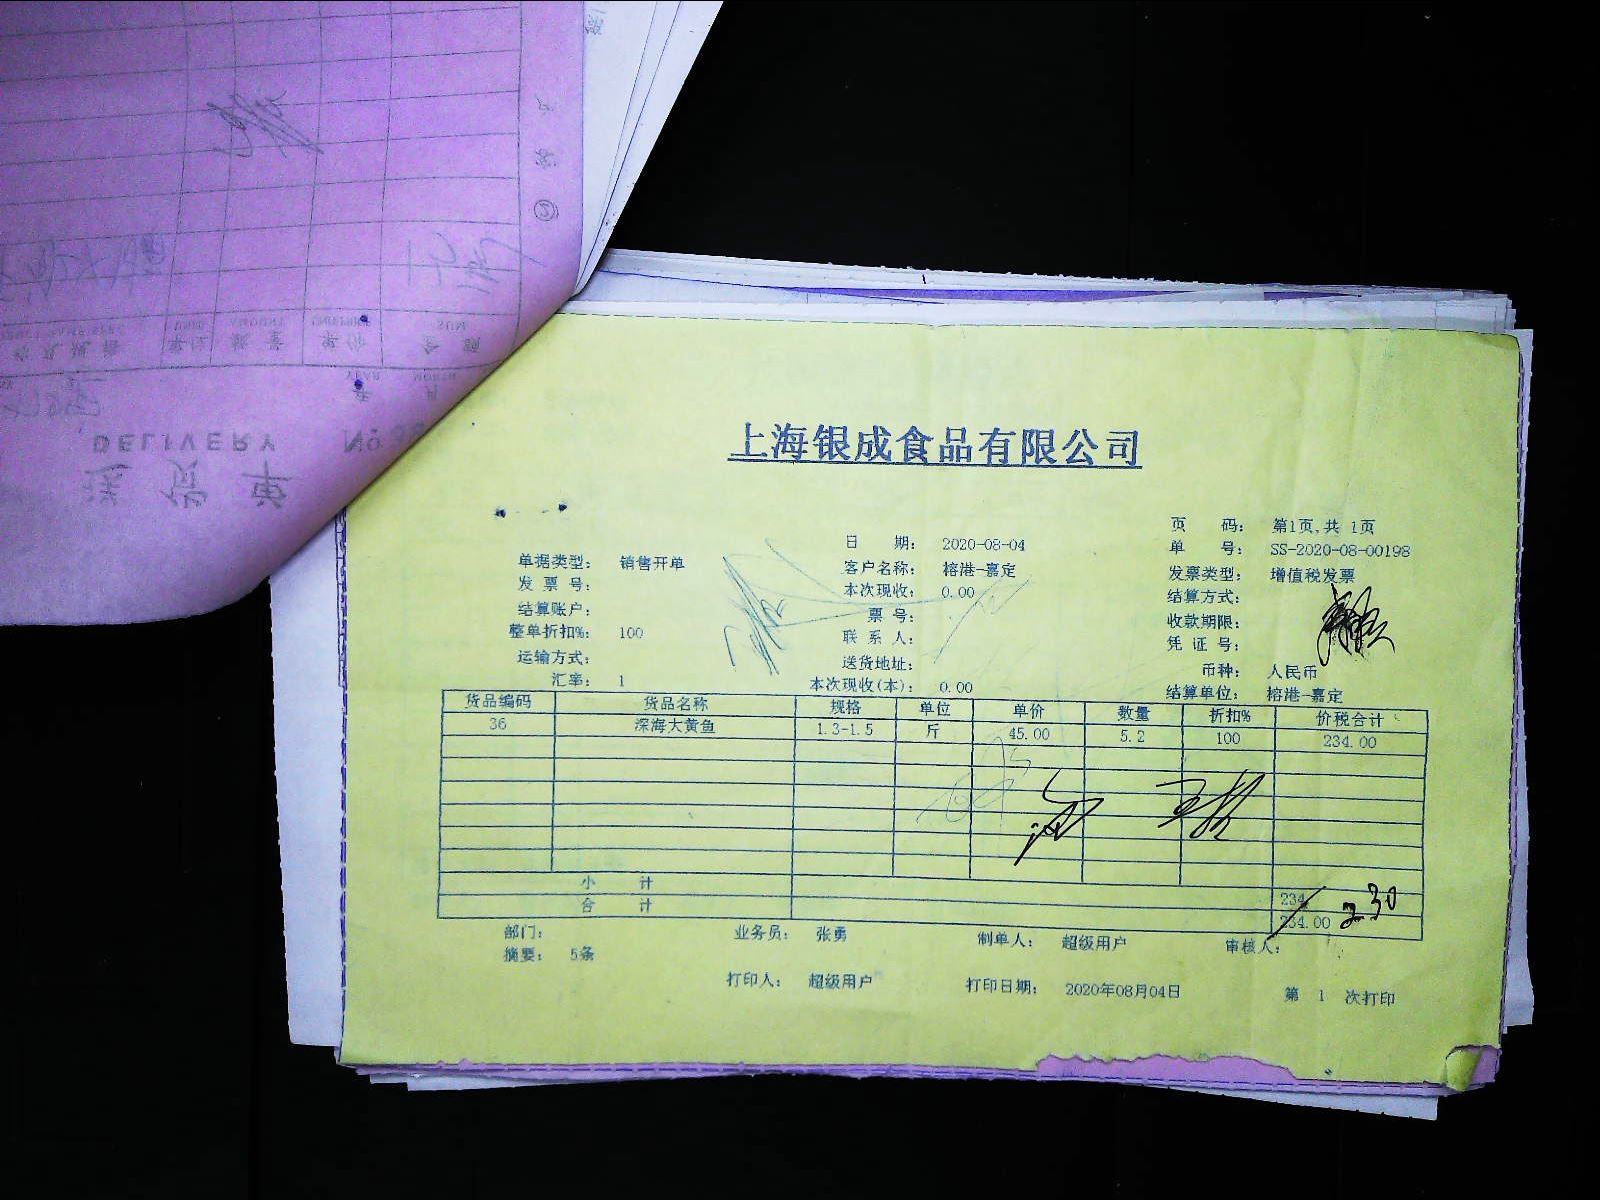 上海银成食品有限公司
页 码： 第1页,共 1页
日 期： 2020-08-04
单 号： SS-2020-08-00198
单据类型： 销售开单
客户名称： 榕港-嘉定
发票类型： 增值税发票
发 票 号：
本次现收： 0.00
结算方式：
结算账户：
票 号：
收款期限：
整单折扣%： 100
联 系 人：
凭 证 号：
运输方式：
送货地址：
币种： 人民币
汇率： 1
本次现收(本)： 0.00
结算单位： 榕港-嘉定
货品编码 货品名称 规格 单位 单价 数量 折扣% 价税合计
36 深海大黄鱼 1.3-1.5 斤 45.00 5.2 100 234.00
小 计 234
合 计 234.00 230
部门： 业务员： 张勇 制单人： 超级用户 审核人：
摘要： 5条
打印人： 超级用户 打印日期： 2020年08月04日 第 1 次打印
送货单
DELIVERY
No